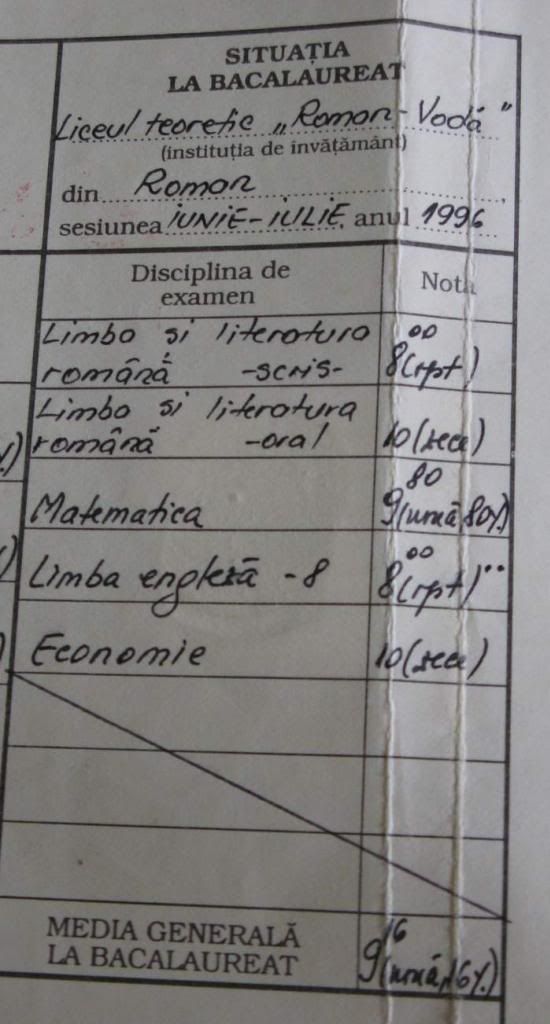 SITUAȚIA
LA BACALAUREAT
Liceul teoretic „Roman-Vodă"
(instituția de învățământ)
din Roman
sesiunea IUNIE-IULIE, anul 1996
Disciplina de
examen
Nota
Limba si literatura
română -scris-
8 00 (opt)
Limba si literatura
română -oral
10 (zece)
Matematica
9 80 (nouă 80%)
Limba engleză -8
8 00 (opt)
Economie
10 (zece)
MEDIA GENERALĂ
LA BACALAUREAT
9 16 (nouă, 16%)